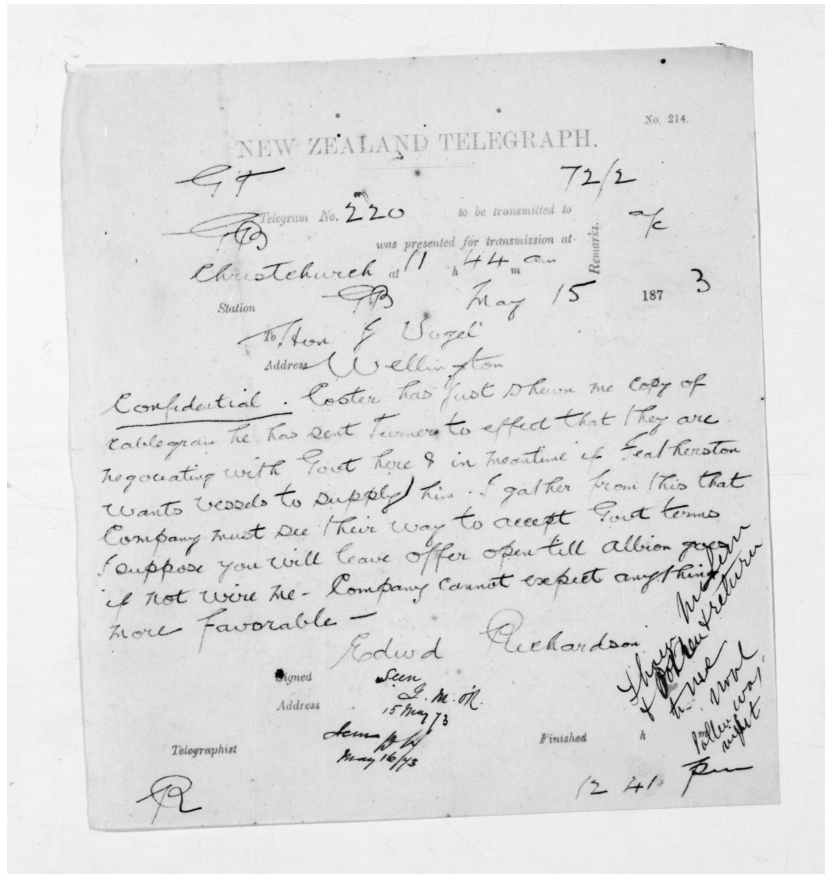 No. 214.
NEW ZEALAND TELEGRAPH.
72/2
Telegram No. 220 to be transmitted to
a/c
was presented for transmission at
Remarks.
Christchurch at 11 h 44 m am
Station May 15 187 3
To Hon J Vogel
Address Wellington
Confidential. Coster has just shewn me copy of
cablegram he has sent Turner to effect that they are
negociating with Govt here & in meantime if Featherston
wants vessels to supply him. I gather from this that
Company must see their way to accept Govt terms
I suppose you will leave offer open till Albion goes
if not wire me - Company cannot expect anything
more favorable -
Edwd Richardson
Signed Seen
Address G. M. O'R.
15 May 73
Telegraphist
May 16/73
Finished h m
12 41 pm
& return
to me